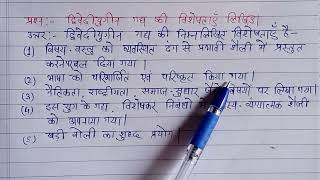 प्रश्न:- द्विवेदीयुगीन गद्य की विशेषताएँ लिखिए।
उत्तर:- द्विवेदीयुगीन गद्य की निम्नलिखित विशेषताएँ है-
(1) विषय-वस्तु को व्यवस्थित ढंग से प्रभावी शैली में प्रस्तुत
करने पर बल दिया गया।
(2) भाषा को परिमार्जित एवं परिष्कृत किया गया।
(3) नैतिकता, राष्ट्रीयता, समाज-सुधार विषयों पर लिखा गया।
(4) इस युग के गद्य, विशेषकर निबंधों में व्यंग्यात्मक शैली
को अपनाया गया।
(5) खड़ी बोली का शुद्ध प्रयोग।